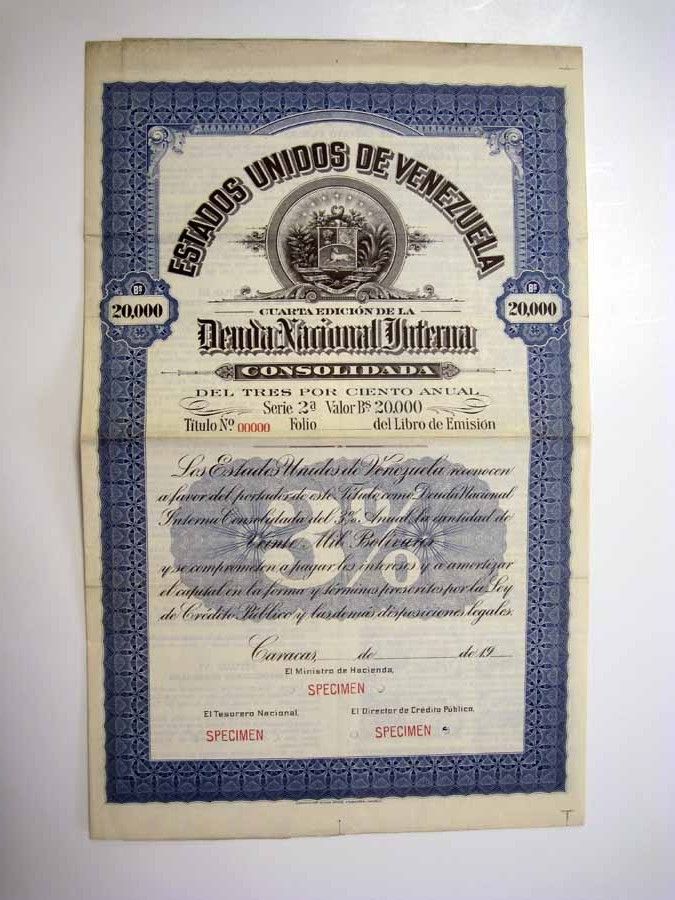 ESTADOS UNIDOS DE VENEZUELA
Bs 20,000
Bs 20,000
CUARTA EDICIÓN DE LA
Deuda Nacional Interna
CONSOLIDADA
DEL TRES POR CIENTO ANUAL
Serie 2a Valor Bs 20.000
Título No 00000 Folio del Libro de Emisión
Los Estados Unidos de Venezuela reconocen
a favor del portador de este Título como Deuda Nacional
Interna Consolidada del 3% Anual, la cantidad de
Veinte Mil Bolívares
3%
y se comprometen a pagar los intereses y a amortizar
el capital en la forma y términos prescritos por la Ley
de Crédito Público y las demás disposiciones legales.
Caracas, de de 19
El Ministro de Hacienda,
SPECIMEN
El Tesorero Nacional, El Director de Crédito Público,
SPECIMEN SPECIMEN